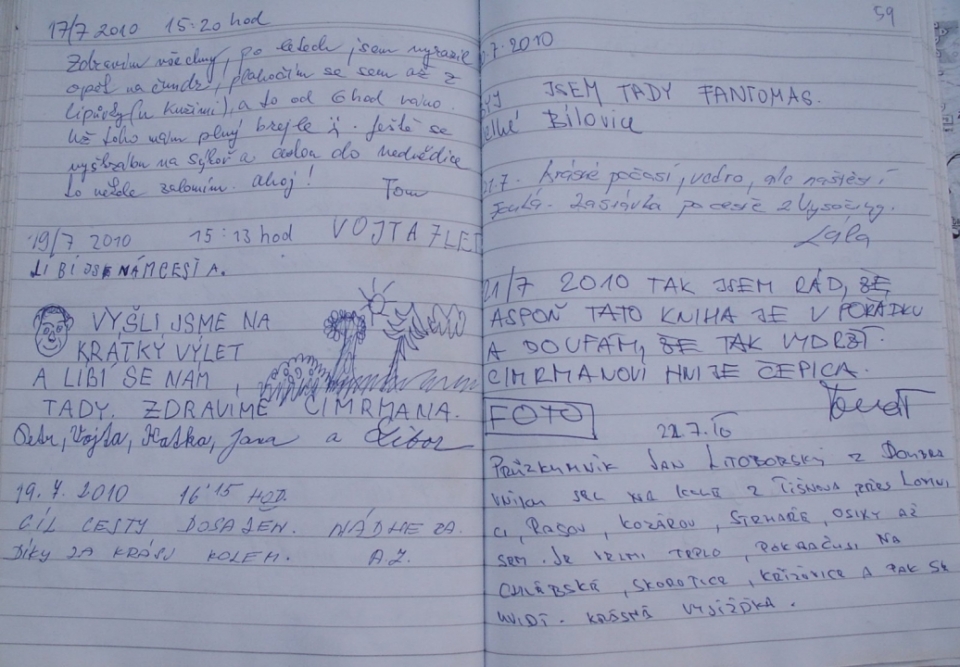 17/7 2010 15:20 hod
Zdravím všechny, po letech jsem vyrazil
opět na čundr, plahočím se sem až z
Lipůvky (u Kuřimi), a to od 6 hod ráno.
Už toho mám plný brejle. Ještě se
vyškrábu na Sýkoř a cestou do Nedvědice
to někde zalomím. Ahoj!
Tom
19/7 2010 15:13 hod VOJTA 7 LET
LIBÍ JSE NÁM CESTA.
VYŠLI JSME NA
KRÁTKÝ VÝLET
A LIBÍ SE NÁM
TADY. ZDRAVÍME CIMRMANA.
Petr, Vojta, Katka, Jana a Libor
19.7. 2010 16:15 HOD.
CÍL CESTY DOSAŽEN. NÁDHERA.
DÍKY ZA KRÁSU KOLEM. A.Z.
59
.7.2010
JSEM TADY FANTOMAS.
elké Bílovice
21.7. krásné počasí, vedro, ale naštěstí
fouká. Zastávka po cestě z Vysočiny.
Lála
21/7 2010 TAK JSEM RÁD, ŽE
ASPOŇ TATO KNIHA JE V POŘÁDKU
A DOUFÁM, ŽE TAK VYDRŽÍ.
CIMRMANOVI HNIJE ČEPICA.
FOTO
22.7.10
PRŮZKUMNÍK JAN LITOBORSKÝ Z DOUBRA
VNÍKU JEL NA KOLE Z TIŠNOVA PŘES LOMNI
CI, RAŠOV, KOZÁROV, STRHAŘE, OSIKY AŽ
SEM. JE VELMI TEPLO, POKRAČUJI NA
CHLÉBSKÉ, SKOROTICE, KŘÍŽOVICE A PAK SE
UVIDÍ. KRÁSNÁ VYJÍŽĎKA.